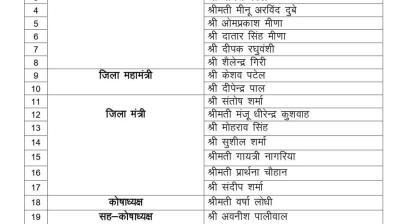 4 श्रीमती मीनू अरविंद दुबे
5 श्री ओमप्रकाश मीणा
6 श्री दातार सिंह मीणा
7 श्री दीपक रघुवंशी
8 श्री शैलेन्द्र गिरी
9 जिला महामंत्री श्री केशव पटेल
10 श्री दीपेन्द्र पाल
11 श्री संतोष शर्मा
12 जिला मंत्री श्रीमती मंजू धीरेन्द्र कुशवाह
13 श्री मोहराव सिंह
14 श्री सुशील शर्मा
15 श्रीमती गायत्री नागरिया
16 श्रीमती प्रार्थना चौहान
17 श्री संदीप शर्मा
18 कोषाध्यक्ष श्रीमती वर्षा लोधी
19 सह–कोषाध्यक्ष श्री अवनीश पालीवाल